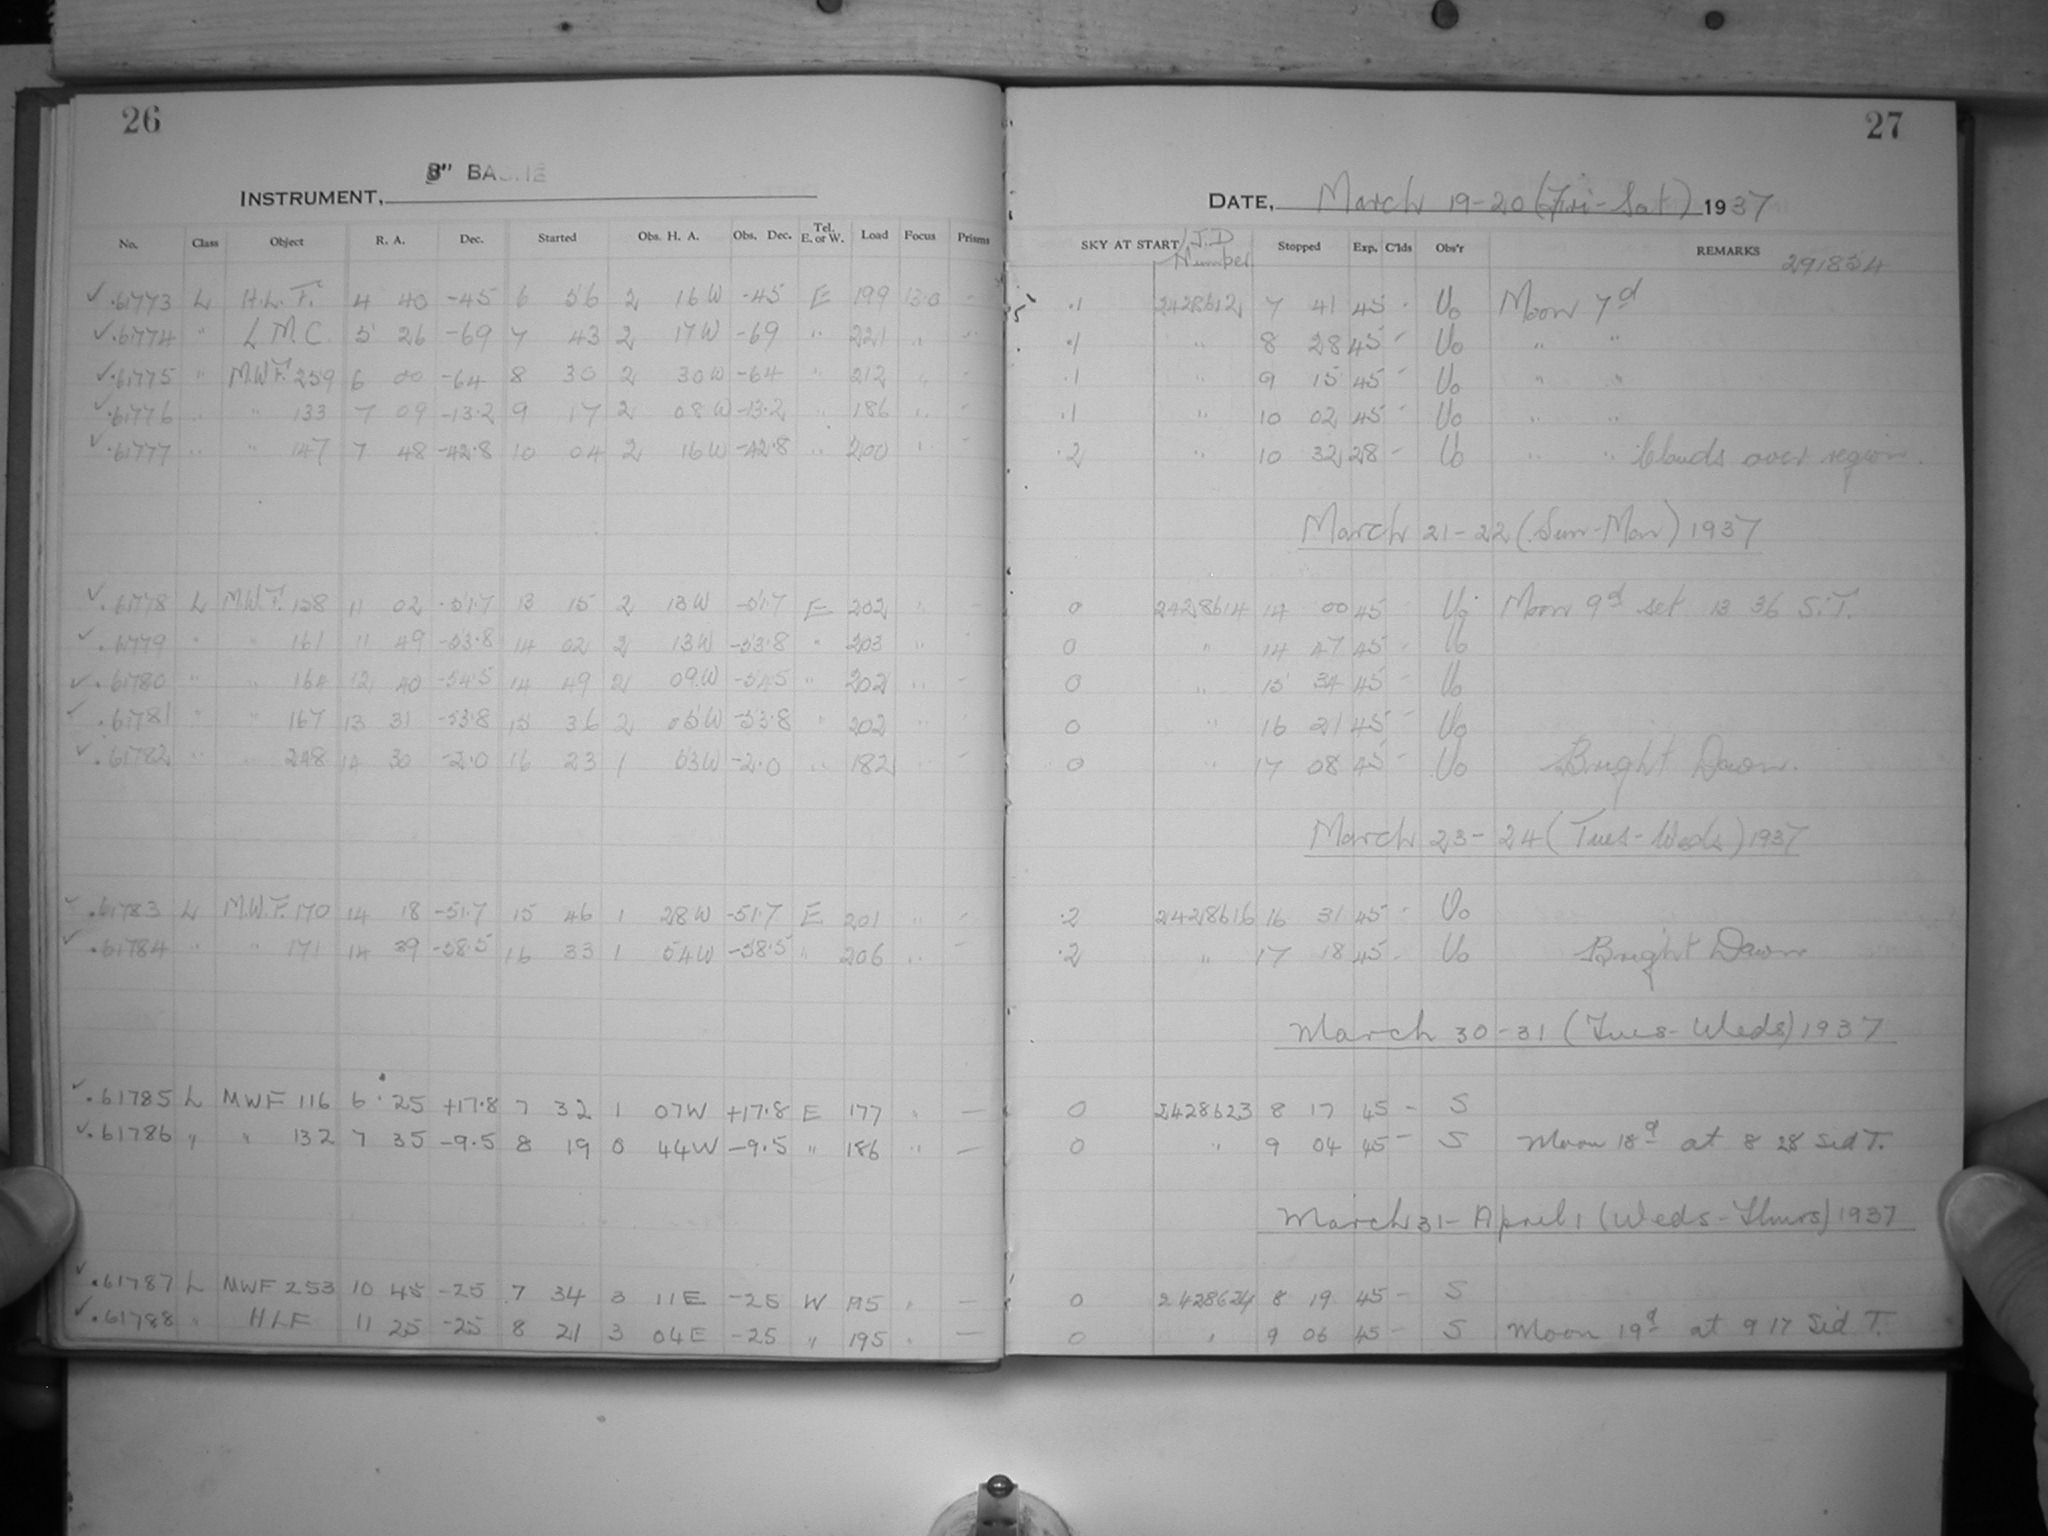 26
8" BACHE
INSTRUMENT,
No. Class Object R. A. Dec. Started Obs. H. A. Obs. Dec. Tel. E. or W. Load Focus Prisms
✓ .61773 L H.L.F. 4 40 -45 6 56 2 16W -45 E 199 13.0 -
✓ .61774 " L.M.C. 5 26 -69 7 43 2 17W -69 " 221 " "
✓ .61775 " M.W.F. 259 6 00 -64 8 30 2 30W -64 " 212 " -
✓ .61776 " " 133 7 09 -13.2 9 17 2 08W -13.2 " 186 " -
✓ .61777 " " 147 7 48 -42.8 10 04 2 16W -42.8 " 200 " -
✓ .61778 L M.W.F. 158 11 02 -51.7 13 15 2 13W -51.7 E 202 " -
✓ .61779 " " 161 11 49 -53.8 14 02 2 13W -53.8 " 203 " -
✓ .61780 " " 164 12 40 -54.5 14 49 2 09W -54.5 " 202 " -
✓ .61781 " " 167 13 31 -53.8 15 36 2 05W -53.8 " 202 " -
✓ .61782 " " 248 14 30 -2.0 16 23 1 53W -2.0 " 182 " -
✓ .61783 L M.W.F. 170 14 18 -51.7 15 46 1 28W -51.7 E 201 " -
✓ .61784 " " 171 14 39 -58.5 16 33 1 54W -58.5 " 206 " -
✓ .61785 L MWF 116 6 25 +17.8 7 32 1 07W +17.8 E 177 " -
✓ .61786 " " 132 7 35 -9.5 8 19 0 44W -9.5 " 186 " -
✓ .61787 L MWF 253 10 45 -25 7 34 3 11E -25 W 195 " -
✓ .61788 " HLF 11 25 -25 8 21 3 04E -25 " 195 " -
27
DATE, March 19-20 (Fri-Sat) 1937
SKY AT START J.D Number Stopped Exp. C'lds Obs'r REMARKS 291854
.1 2428612 7 41 45 - Uo Moon 7d
.1 " 8 28 45 - Uo " "
.1 " 9 15 45 - Uo " "
.1 " 10 02 45 - Uo " "
.2 " 10 32 28 - Uo " " Clouds over region.
March 21-22 (Sun-Mon) 1937
0 2428614 14 00 45 - Uo Moon 9d set 13 36 S.T.
0 " 14 47 45 - Uo
0 " 15 34 45 - Uo
0 " 16 21 45 - Uo
0 " 17 08 45 - Uo Bright Dawn.
March 23-24 (Tues-Weds) 1937
.2 2428616 16 31 45 - Uo
.2 " 17 18 45 - Uo Bright Dawn
March 30-31 (Tues-Weds) 1937
0 2428623 8 17 45 - S
0 " 9 04 45 - S Moon 18d at 8 28 Sid T.
March 31-April 1 (Weds-Thurs) 1937
0 2428624 8 19 45 - S
0 " 9 06 45 - S Moon 19d at 9 17 Sid T.